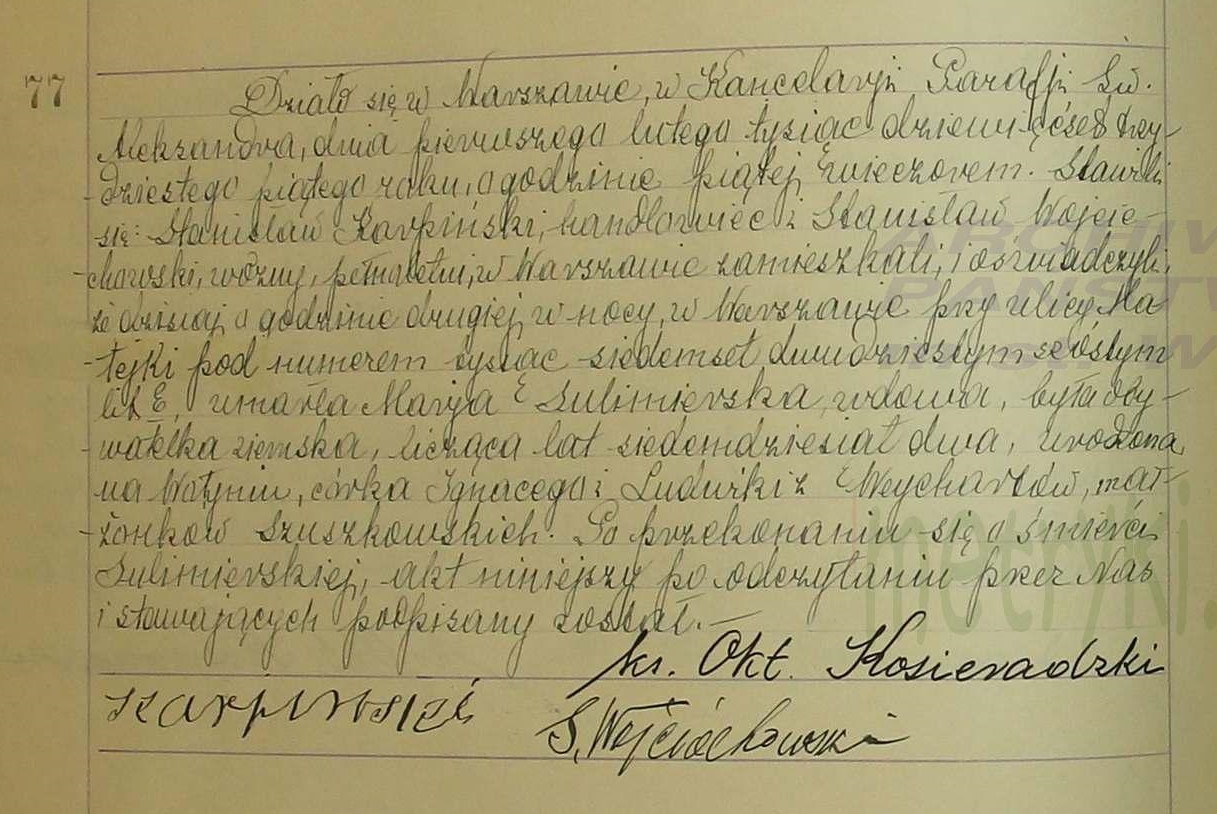 77
Działo się w Warszawie, w Kancelarji Parafji Św.
Aleksandra, dnia pierwszego lutego tysiąc dziewięćset trzy-
-dziestego piątego roku, o godzinie piątej wieczorem. Stawili
się: Stanisław Karpiński, handlowiec i Stanisław Wojcie-
-chowski, woźny, pełnoletni, w Warszawie zamieszkali, i oświadczyli,
że dzisiaj o godzinie drugiej w nocy, w Warszawie przy ulicy Ma-
-tejki pod numerem tysiąc siedemset dwudziestym szóstym
lit. E, umarła Marja Sulimierska, wdowa, była oby-
-watelka ziemska, licząca lat siedemdziesiąt dwa, urodzona
na Wołyniu, córka Ignacego i Ludwiki z Weychartów, mał-
-żonków Szuszkowskich. Po przekonaniu się o śmierci
Sulimierskiej, akt niniejszy po odczytaniu przez Nas
i stawających podpisany został.—
ks. Okt. Kosieradzki
Karpiński
S. Wojciechowski
ARCHIW
PAŃSTW
metryki.